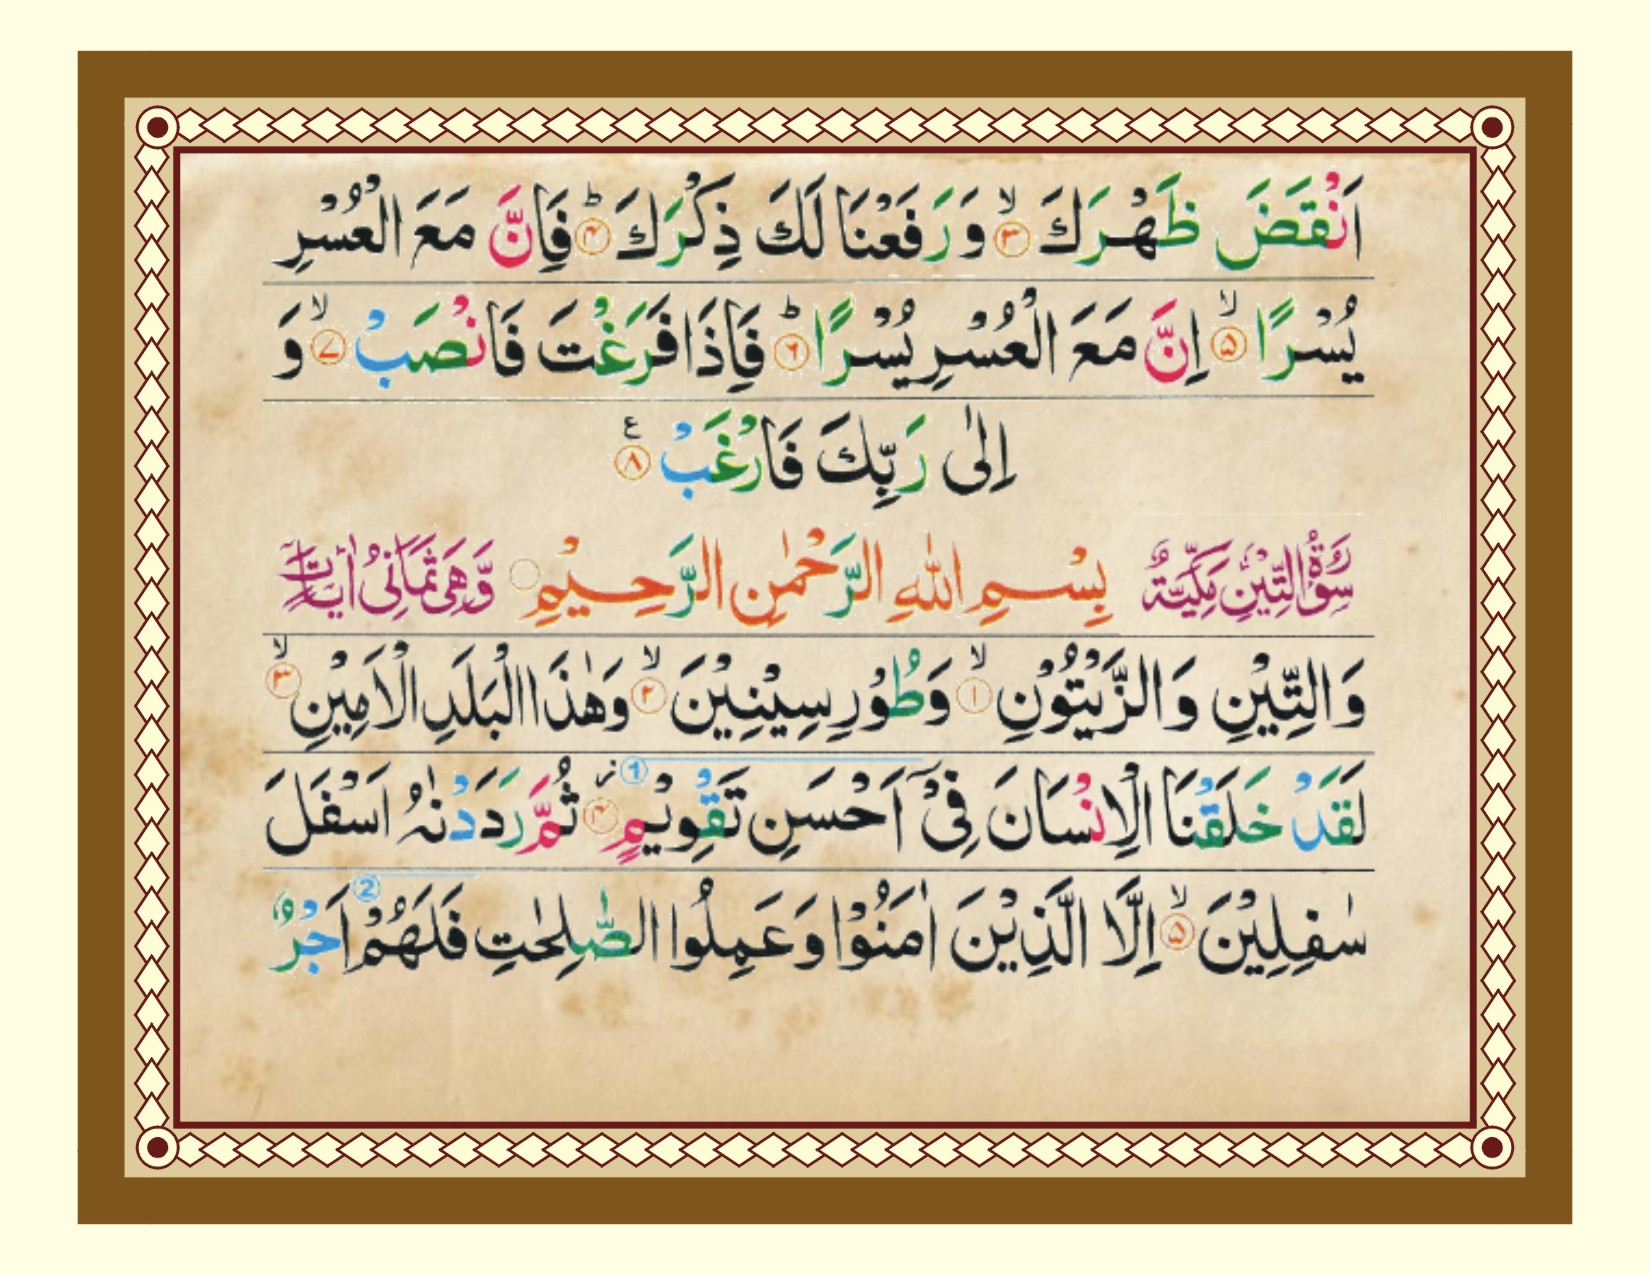 اَنْقَضَ ظَهْرَكَ ۙ﴿۳﴾ وَرَفَعْنَا لَكَ ذِكْرَكَ ؕ﴿۴﴾ فَاِنَّ مَعَ الْعُسْرِ
يُسْرًا ۙ﴿۵﴾ اِنَّ مَعَ الْعُسْرِ يُسْرًا ؕ﴿۶﴾ فَاِذَا فَرَغْتَ فَانْصَبْ ۙ﴿۷﴾ وَ
اِلٰى رَبِّكَ فَارْغَبْ ﴿۸﴾ ع
سُوْرَةُ التِّيْنِ مَكِّيَّةٌ بِسْمِ اللّٰهِ الرَّحْمٰنِ الرَّحِيْمِ وَّهِىَ ثَمَانِىْ اٰيَاتٍ
وَالتِّيْنِ وَالزَّيْتُوْنِ ۙ﴿۱﴾ وَطُوْرِ سِيْنِيْنَ ۙ﴿۲﴾ وَهٰذَا الْبَلَدِ الْاَمِيْنِ ۙ﴿۳﴾
لَقَدْ خَلَقْنَا الْاِنْسَانَ فِىْٓ اَحْسَنِ تَقْوِيْمٍ ز﴿۴﴾ 1 ثُمَّ رَدَدْنٰهُ اَسْفَلَ
سٰفِلِيْنَ ۙ﴿۵﴾ اِلَّا الَّذِيْنَ اٰمَنُوْا وَعَمِلُوا الصّٰلِحٰتِ فَلَهُمْ 2 اَجْرٌ